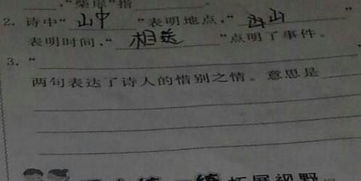 ,"柴扉"指
2. 诗中"山中"表明地点,"
表明时间,"相送"点明了事件。
3. "
两句表达了诗人的惜别之情。意思是
拓展视野